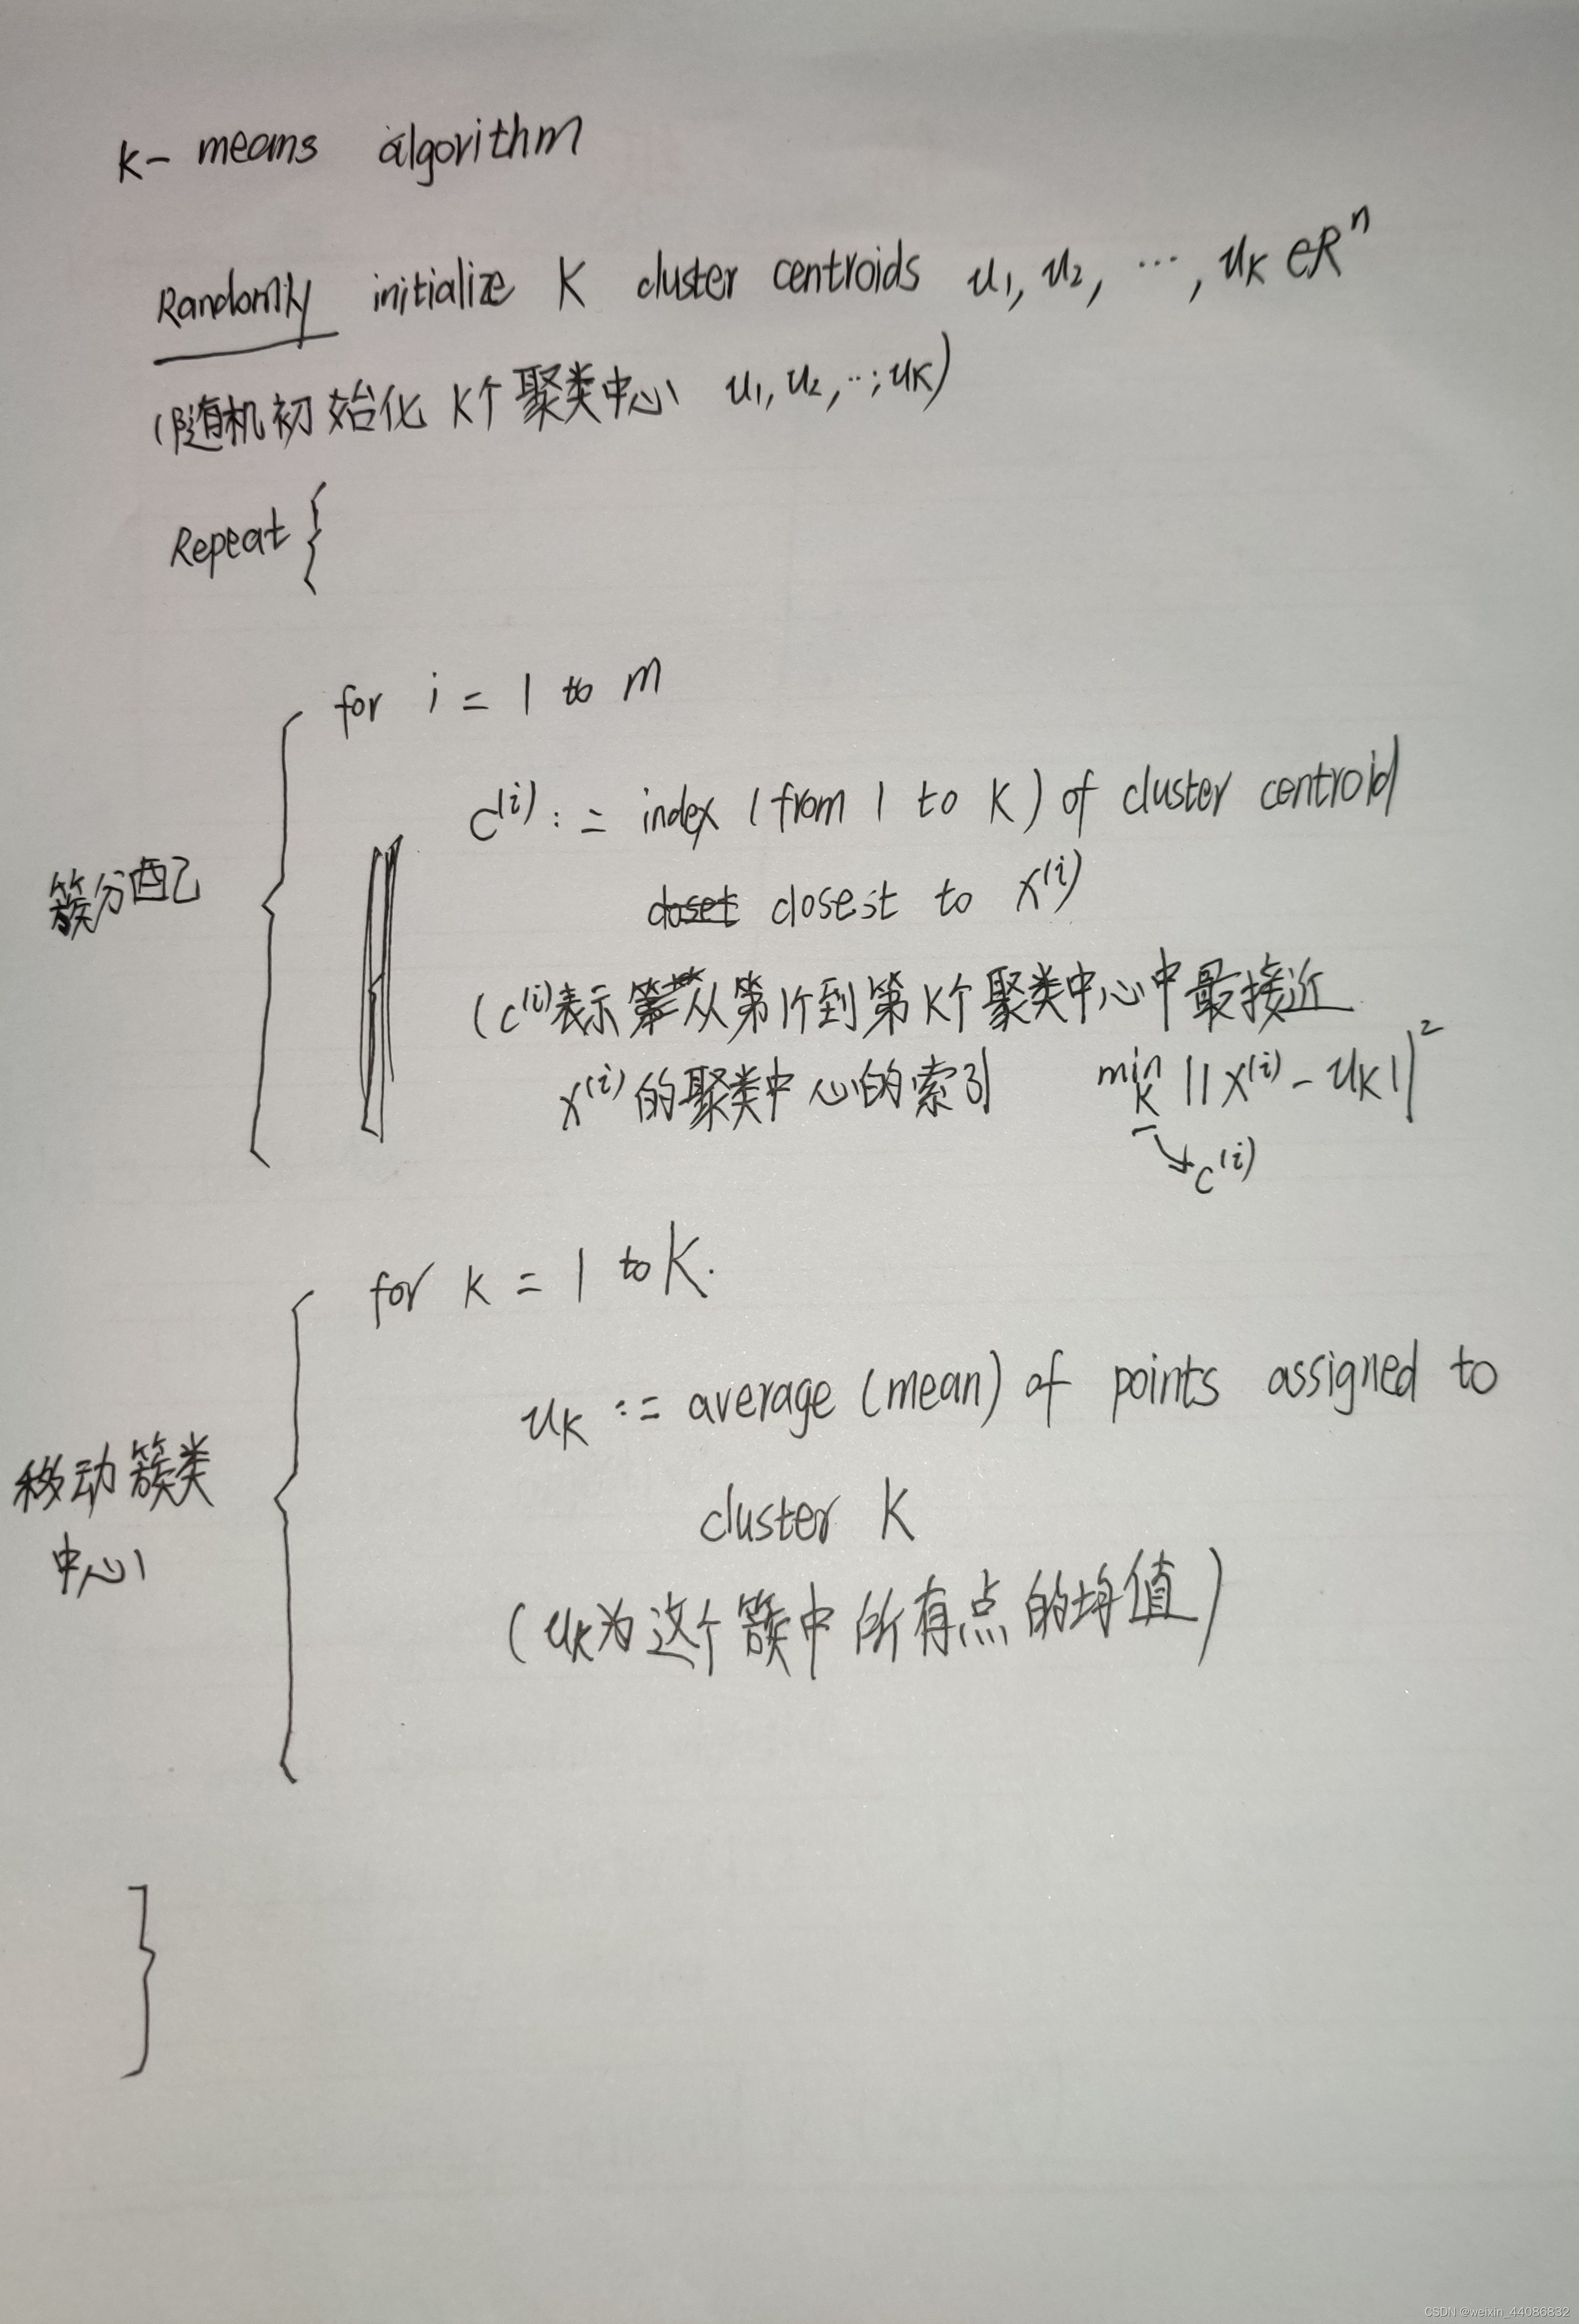 K- means algorithm
Randomly initialize K cluster centroids u₁, u₂, ..., uK ∈ Rⁿ
(随机初始化 K个聚类中心 u₁, u₂, ..., uK)
Repeat {
for i = 1 to m
C⁽ⁱ⁾ := index (from 1 to K) of cluster centroid
簇分配
closet closest to x⁽ⁱ⁾
(C⁽ⁱ⁾表示第从第1个到第K个聚类中心中最接近
x⁽ⁱ⁾的聚类中心的索引 min ||x⁽ⁱ⁾ - uK||²
K
C⁽ⁱ⁾
for K = 1 to K.
uK := average (mean) of points assigned to
移动簇类
中心
cluster K
(uK为这个簇中所有点的均值)
}
CSDN @weixin_44086832